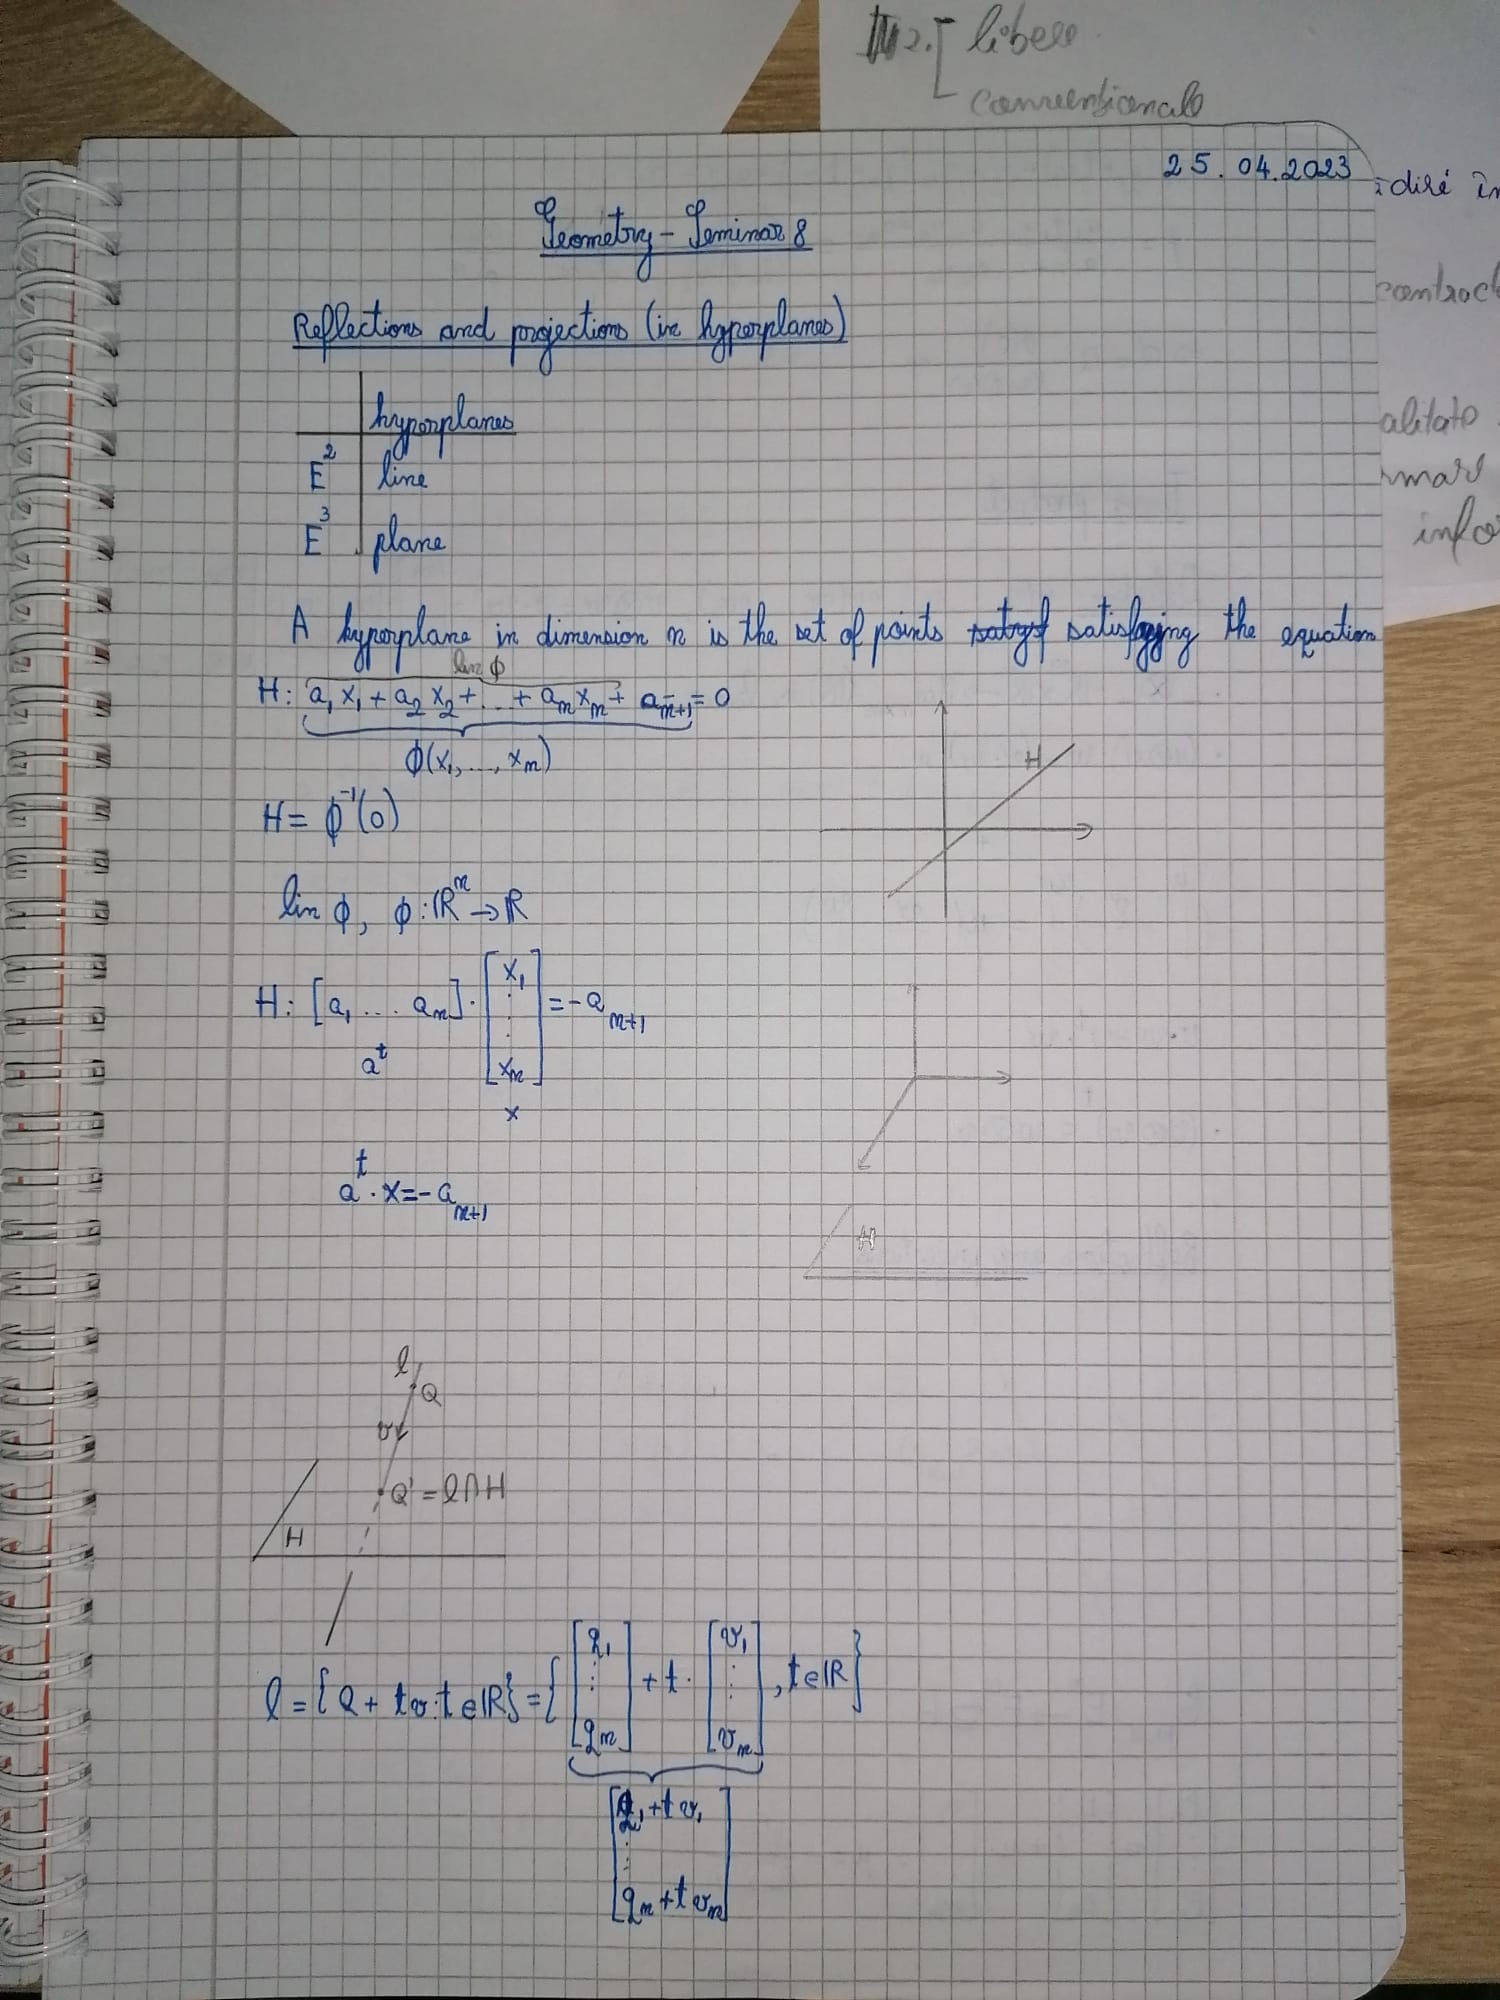 2. libere
conventionale
25.04.2023
Geometry - Seminar 8
Reflections and projections (in hyperplanes)
hyperplanes
E² line
E³ plane
A hyperplane in dimension n is the set of points satisfying the equation
lin ϕ
H: a₁x₁ + a₂x₂ + ... + aₙxₙ + aₙ₊₁ = 0
ϕ(x₁, ..., xₙ)
H
H = ϕ⁻¹(0)
lin ϕ, ϕ: ℝⁿ → ℝ
H: [a₁ ... aₙ] · [x₁ ⋮ xₙ] = -aₙ₊₁
aᵗ
x
aᵗ · x = -aₙ₊₁
H
l
Q
v
Q' = l ∩ H
H
l = {Q + tv : t ∈ ℝ} = { [q₁ ⋮ qₙ] + t · [v₁ ⋮ vₙ], t ∈ ℝ }
[q₁ + tv₁ ⋮ qₙ + tvₙ]